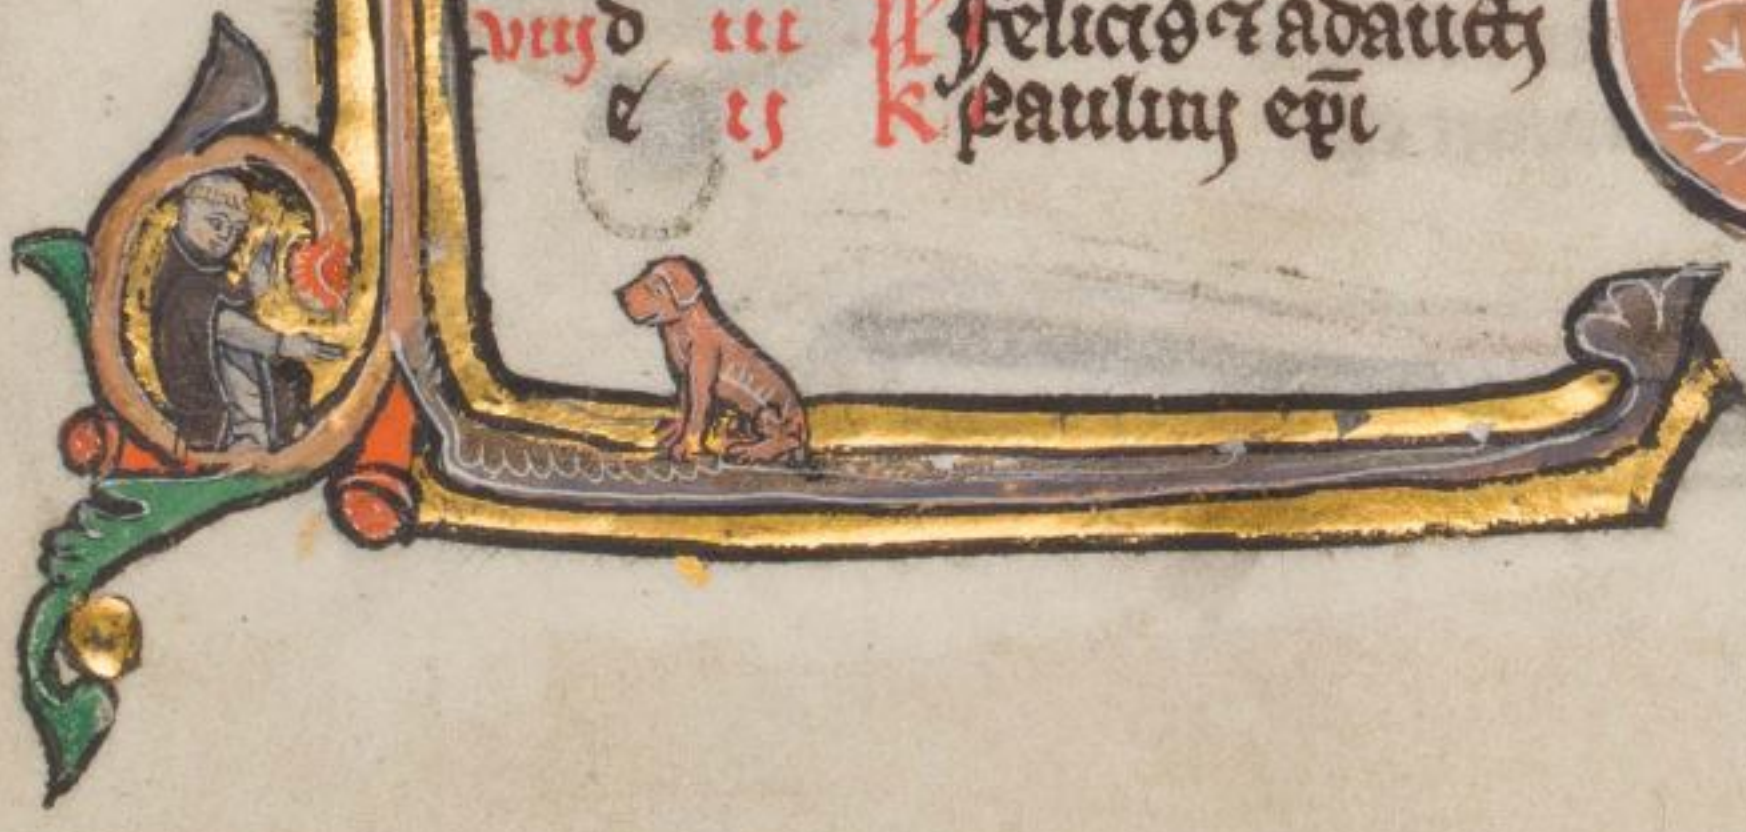 viij d iii kl felicis ⁊ adaucti
e ij k Paulini ep̅i